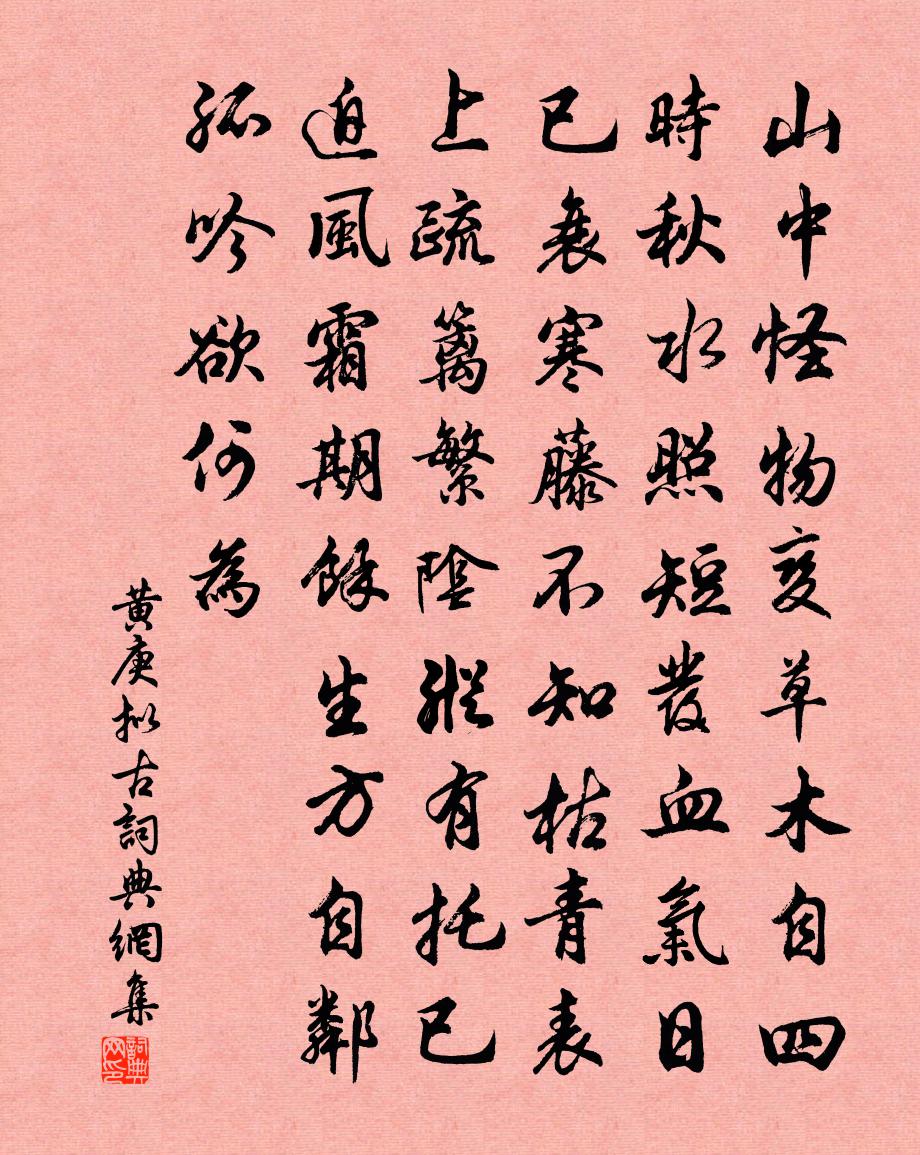 山中怪物变草木自四
時秋水照短發血氣日
已衰寒藤不知枯青表
上疏籬繁陰縱有托已
迫風霜期餘生方自鄰
孤吟欲何為
黃庚拟古詞典網集
詞典网印